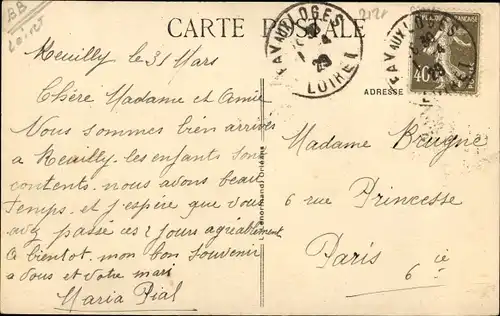 BB
Loiret
CARTE POSTALE
FAY AUX LOGES
1 4
29
LOIRET
FAY AUX LOGES
4
29
LOIRET
FRANÇAISE
40c
ADRESSE
Reuilly le 31 Mars
Chère Madame et Amie
Nous sommes bien arrivés
a Reuilly. les enfants sont
contents. nous avons beau
temps. et j'espère que vous
avez passée ces 2 jours agréablement
a bientot. mon bon souvenir
a vous et votre mari
Maria Pial
L. Lenormand, Orléans
Madame Brugne
6 rue Princesse
Paris
6 ié